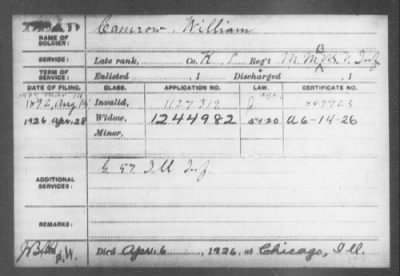 DEAD
NAME OF SOLDIER: Camrow, William
SERVICE: Late rank, Co. K, 1 Reg't M. M. Inf.
TERM OF SERVICE: Enlisted , 1 Discharged , 1
DATE OF FILING. CLASS. APPLICATION NO. LAW. CERTIFICATE NO.
1892, Aug Invalid, 1127319
1926 Apr. 28 Widow, 1244982 A6-14-26
Minor,
ADDITIONAL SERVICES: G 57 Ill Inf.
REMARKS:
Died Apr. 6, 1926, at Chicago, Ill.